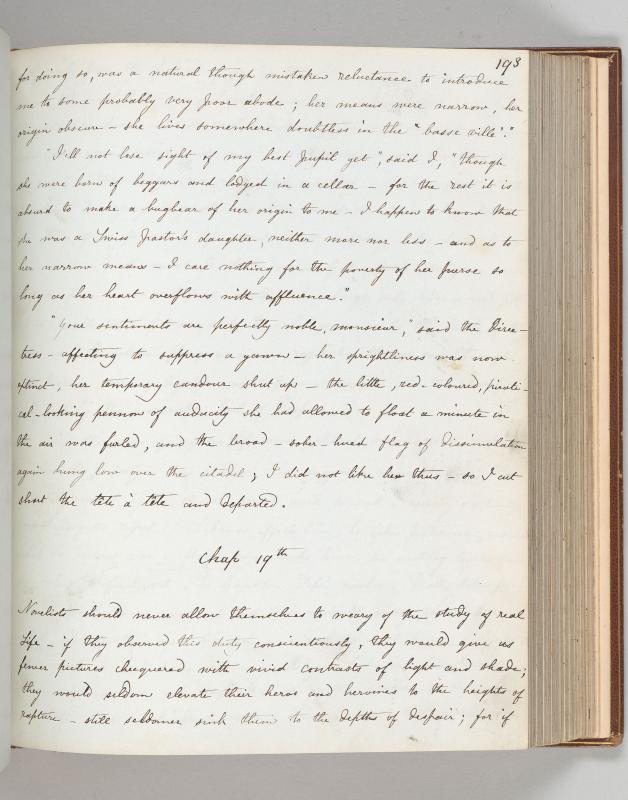 193
for doing so, was a natural though mistaken reluctance to introduce
me to some probably very poor abode ; her means were narrow, her
origin obscure – she lives somewhere doubtless in the "basse ville"."
"I'll not lose sight of my best pupil yet", said I, "though
she were born of beggars and lodged in a cellar – for the rest it is
absurd to make a bugbear of her origin to me – I happen to know that
she was a Swiss Pastor's daughter, neither more nor less – and as to
her narrow means – I care nothing for the poverty of her purse so
long as her heart overflows with affluence."
"Your sentiments are perfectly noble, monsieur," said the Direc-
tress – affecting to suppress a yawn – her sprightliness was now
extinct, her temporary candour shut up – the little, red-coloured, pirati-
cal-looking pennon of audacity she had allowed to float a minute in
the air was furled, and the broad – sober-hued flag of dissimulation
again hung low over the citadel ; I did not like her thus – so I cut
short the tête à tête and departed.
Chap 19th
Novelists should never allow themselves to weary of the study of real
Life – if they observed this duty conscientiously, they would give us
fewer pictures chequered with vivid contrasts of light and shade;
they would seldom elevate their heros and heroines to the heights of
rapture – still seldomer sink them to the depths of despair; for if